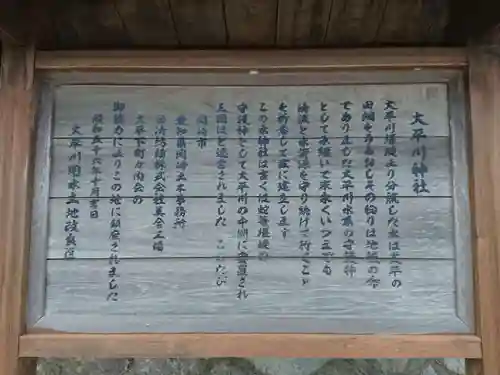 大平川神社
大平川堰堤より分流した水は大平の
田畑を潤しその拘りは地域の命
であり正した大平川水系の守護神
として水継いで末永くいつまでも
清流と水資源を守り続けて行くこと
を祈念して茲に建立します
この水神社は古くは蛇籠堰堤の
守護神として大平川の中洲に安置され
三回ほど遷宮されました このたび
岡崎市
愛知県岡崎土木事務所
日清紡績株式会社美合工場
大平下町々内会の
御協力によりこの地に鎮座されました
昭和五十六年十月吉日
大平川用水土地改良区